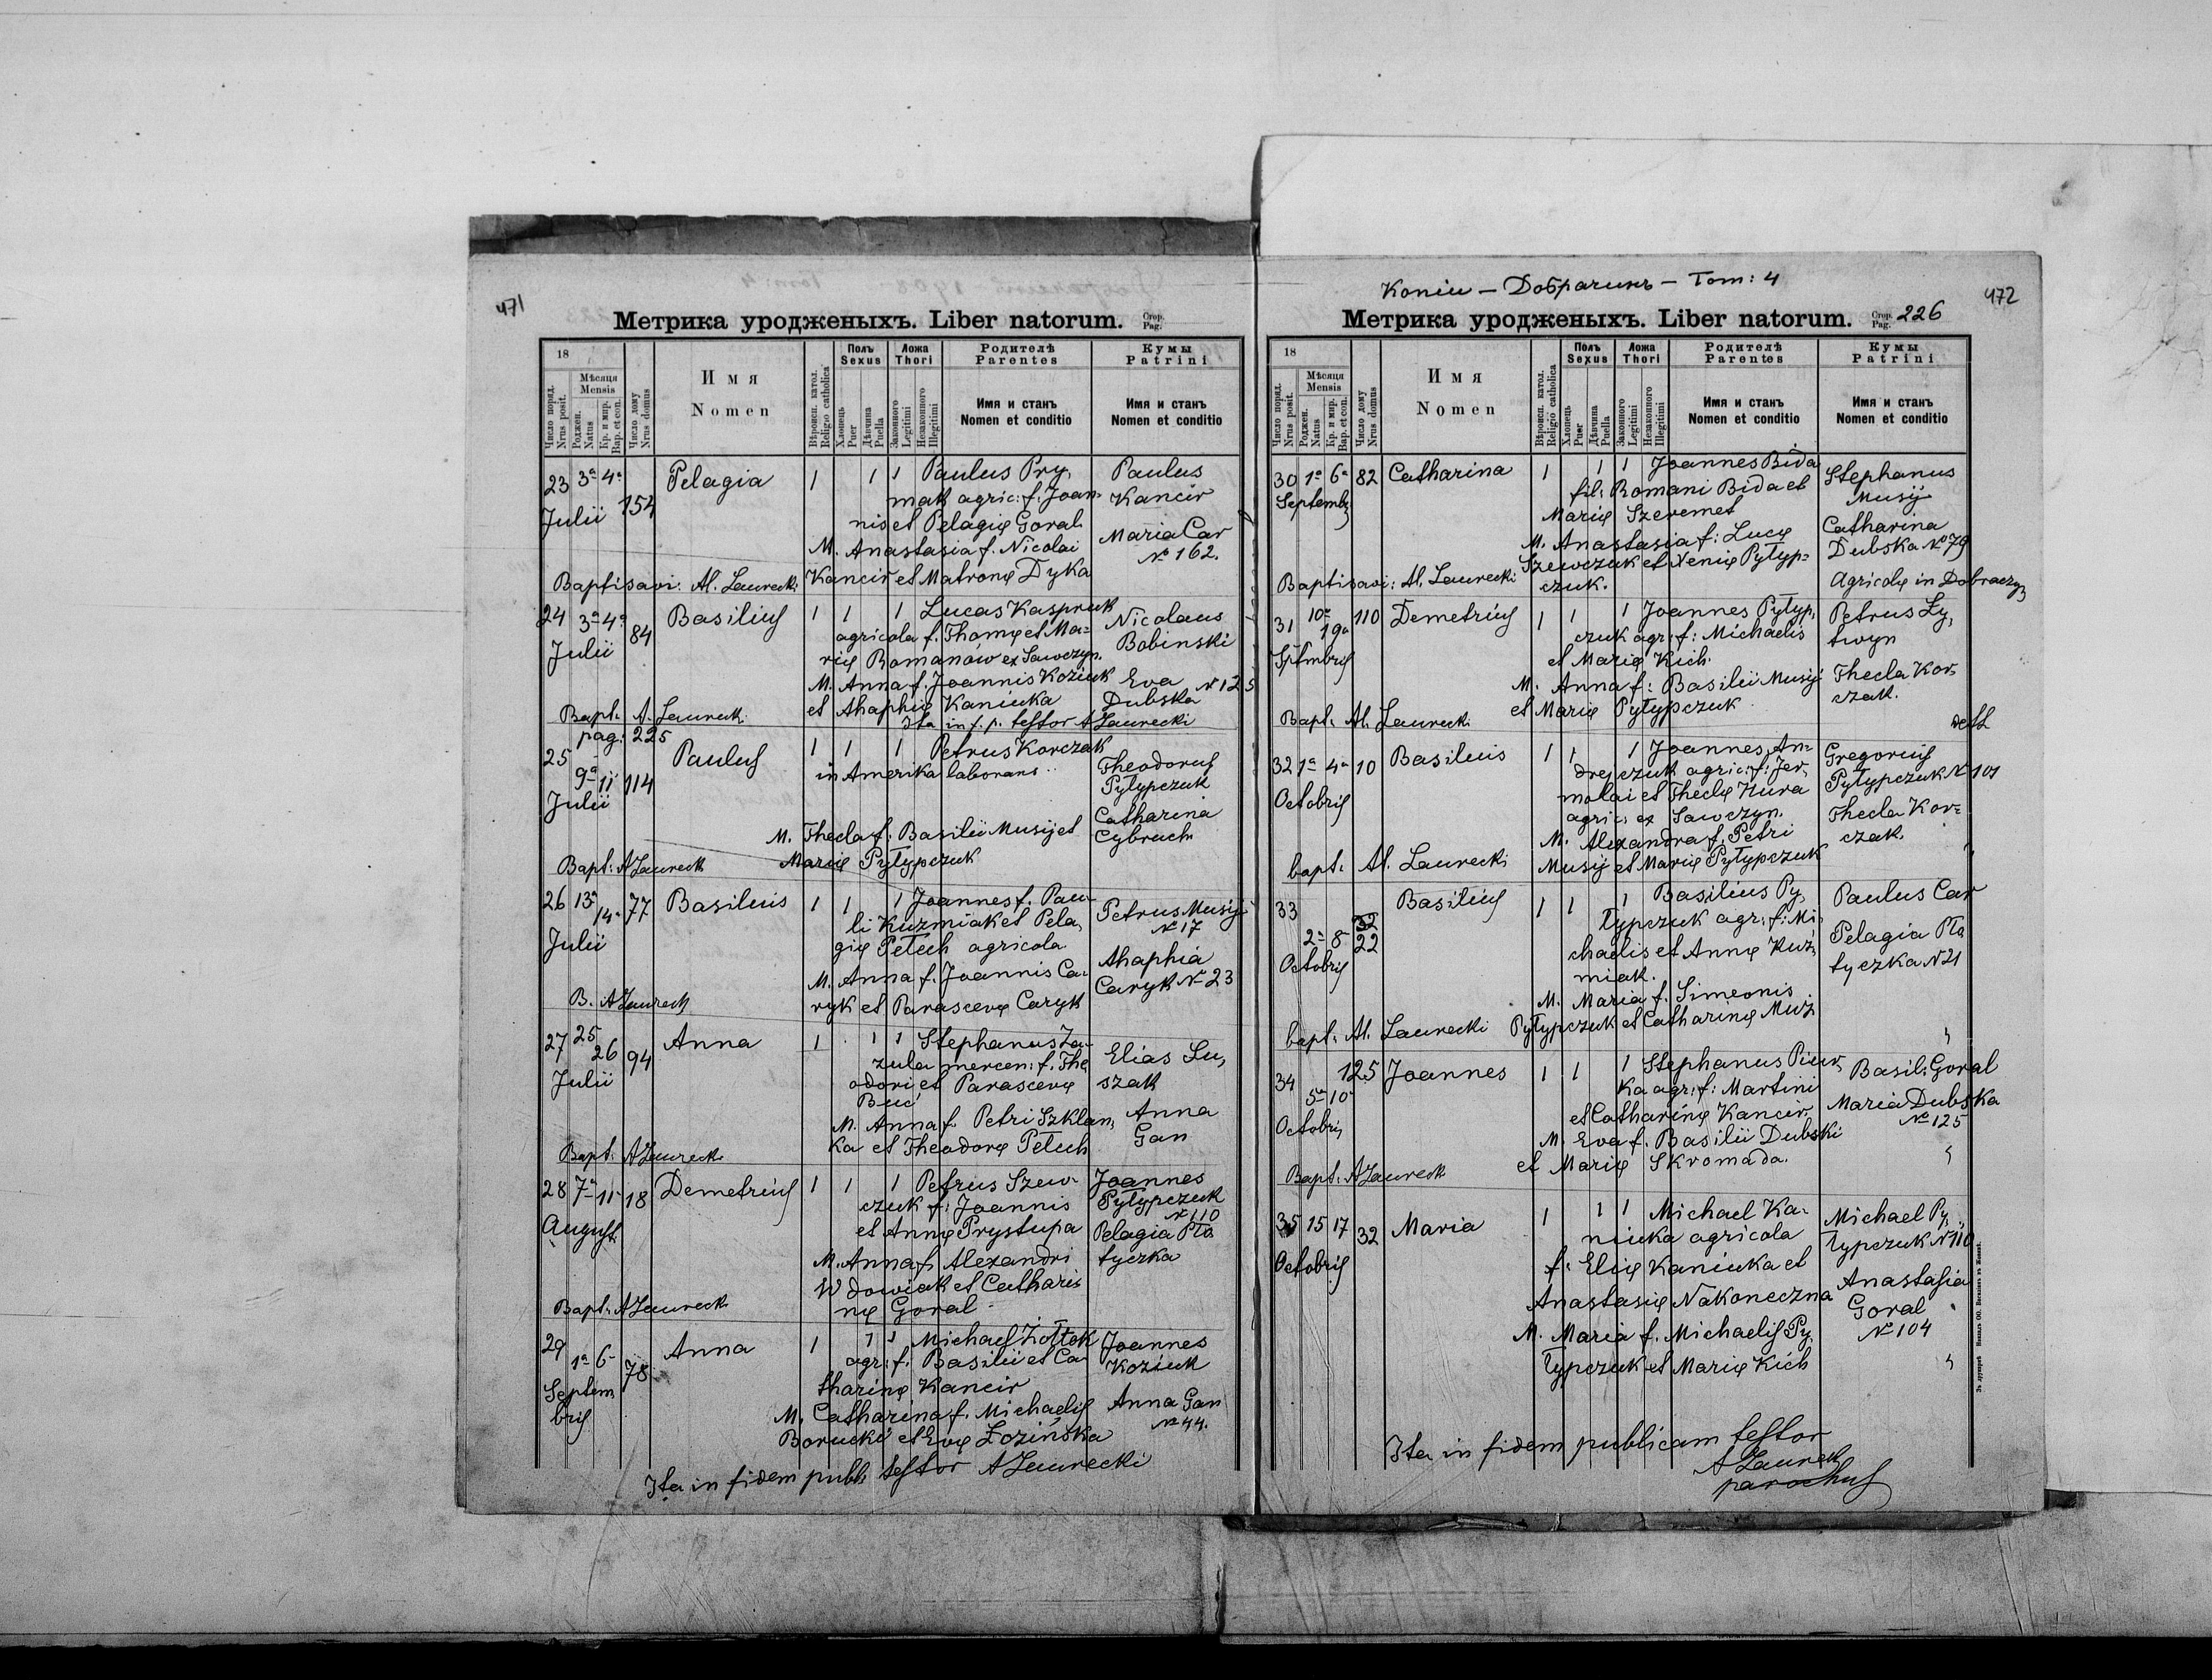 471
Метрика уродженыхъ. Liber natorum. Стор. Pag.
18
Число поряд. Nrus posit.
Мѣсяця Mensis
Роджен. Natus
Кр. и мир. Bap. et con.
Число дому Nrus domus
Имя
Nomen
Вѣроисп. катол. Religio catholica
Полъ Sexus
Хлопець Puer
Дѣвчина Puella
Ложа Thori
Законного Legitimi
Незаконного Illegitimi
Родителѣ Parentes
Имя и станъ
Nomen et conditio
Кумы Patrini
Имя и станъ
Nomen et conditio
23 3ª 4ª 154 Pelagia 1 1 1 Paulus Pry, Paulus
Julii mak agric: f: Joan- Kancir
nis et Pelagię Goral
M. Anastasia f. Nicolai Maria Car
Nº 162.
Baptisavi: Al. Laurecki Kancir et Matronę Dyka
24 3ª 4ª 84 Basilius 1 1 1 Lucas Kaspruk Nicolaus
Julii agricola f. Thomę et Ma= Bobinski
rię Romanów ex Sawczyn.
M. Anna f. Joannis Koziuk Eva Nº 125
Bapt. A. Laureck. et Ahaphię Kaniuka Dubska
Ita in f. p. testor A Laurecki
pag: 225
25 9ª 11 114 Paulus 1 1 1 Petrus Korczak
Julii in Amerika laborans Theodorus
Pyłypczuk
Catharina
M. Thecla f. Basilii Musij et Cybruch
Bapt. A Laureck Marię Pyłypczuk
26 13ª 14ª 77 Basilius 1 1 1 Joannes f. Pau-
Julii li Kuzmiak et Pela, Petrus Musij
gię Petech agricola Nº 17
M. Anna f. Joannis Ca- Ahaphia
B. A Laureck ryk et Parascevę Caryk Caryk Nº 23
27 25 26 94 Anna 1 1 1 Stephanus Za-
Julii zula mercen: f. The Elias Lu,
odori et Parascevę szak
Buć
M. Anna f. Petri Szklan, Anna
Bapt. A Laureck ka et Theodorę Petech Gan
28 7ª 11 18 Demetrius 1 1 1 Petrus Szew- Joannes
August. czuk f: Joannis Pyłypczuk
et Annę Prystupa Nº 110
M. Anna f. Alexandri Pelagia Pta
Wdowiak et Cathari tyczka
Bapt. A Laureck nę Goral
29 1ª 6 78 Anna 1 1 1 Michael Żołtek Joannes
Septem agr: f. Basilii et Ca- Koziuk
bris tharinę Kancir
M. Catharina f. Michaelis Anna Gan
Borucki et Evę Łozińska Nº 44.
Ita in fidem publi testor A Laurecki
Копіи - Добрачинъ - Том: 4
472
Метрика уродженыхъ. Liber natorum. Стор. Pag. 226
18
Число поряд. Nrus posit.
Мѣсяця Mensis
Роджен. Natus
Кр. и мир. Bap. et con.
Число дому Nrus domus
Имя
Nomen
Вѣроисп. катол. Religio catholica
Полъ Sexus
Хлопець Puer
Дѣвчина Puella
Ложа Thori
Законного Legitimi
Незаконного Illegitimi
Родителѣ Parentes
Имя и станъ
Nomen et conditio
Кумы Patrini
Имя и станъ
Nomen et conditio
30 1ª 6ª 82 Catharina 1 1 1 Joannes Bida Stephanus
Septemb fil: Romani Bida et Musij
Marię Szeremet Catharina
M. Anastasia f: Lucę Dubska Nº 79
Szewczuk et Xenię Pyłyp=
Baptisavi: Al. Laurecki czuk. Agricolę in Dobraczyn
31 10ª 19ª 110 Demetrius 1 1 1 Joannes Pyłyp, Petrus Ly,
Sptmbris czuk agr: f: Michaelis twyn
et Marię Kich.
M. Anna f: Basilii Musij Thecla Kor,
Bapt. Al. Laurecki et Marię Pyłypczuk czak.
32 1ª 4ª 10 Basilius 1 1 1 Joannes An= Gregorius
Octobris drejczuk agric: f: Jer, Pyłypczuk Nº 101
molai et Theclę Hura
agric: ex Sawczyn. Thecla Kor=
M. Alexandra f. Petri czak.
bapt. Al. Laurecki Musij et Marię Pyłypczuk
33 2ª 8 32 22 Basilius 1 1 1 Basilius Py, Paulus Car
Octobris łypczuk agr: f: Mi,
chaelis et Annę Kuź, Pelagia Pta
miak. tyczka N 21
M. Maria f. Simeonis
bapt. Al. Laurecki Pyłypczuk et Catharinę Muż
34 5ª 10 125 Joannes 1 1 1 Stephanus Piur, Basil: Goral
Octobri, ka agr: f: Martini
et Catharinę Kancir, Maria Dubska
M. Eva f. Basilii Dubski Nº 125
Bapt. A Laureck et Marię Skromada.
35 15 17 32 Maria 1 1 1 Michael Ka- Michael Py,
Octobris niuka agricola łypczuk Nº 110
f: Elię Kaniuka et
Anastasię Nakoneczna Anastasia
M. Maria f. Michaelis Py, Goral
łypczuk et Marię Kich Nº 104
Ita in fidem publicam testor
A Laureck
parochus